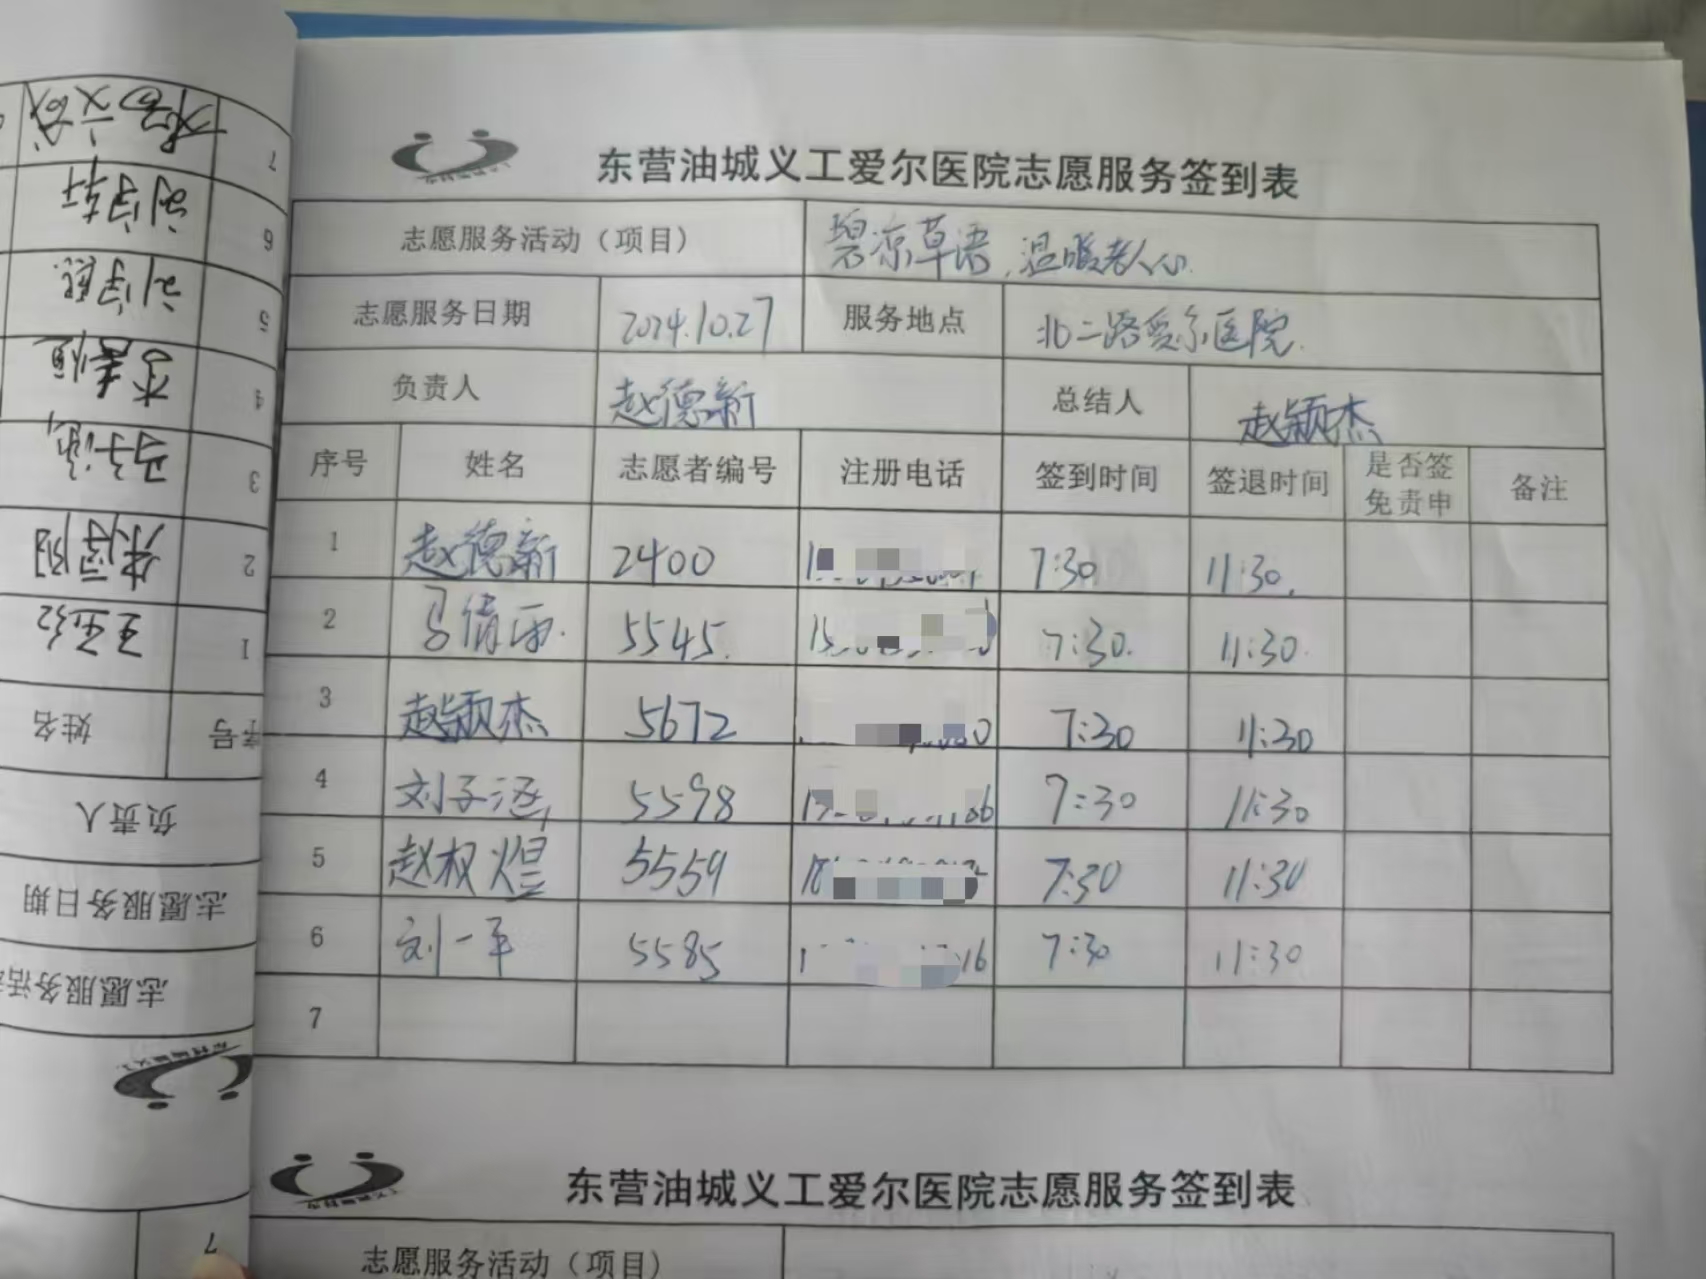 东营油城义工爱尔医院志愿服务签到表
志愿服务活动（项目） 碧凉草语，温暖老人心.
志愿服务日期 2024.10.27 服务地点 北二路爱尔医院.
负责人 赵德新 总结人 赵颖杰
序号 姓名 志愿者编号 注册电话 签到时间 签退时间 是否签免责申 备注
1 赵德新 2400 7:30 11:30.
2 马倩雨. 5545. 7:30. 11:30.
3 赵颖杰 5672 7:30 11:30
4 刘子涵 5598 7:30 11:30
5 赵权煜 5559 7:30 11:30
6 刘一平 5585 7:30 11:30
7
东营油城义工爱尔医院志愿服务签到表
志愿服务活动（项目）
志愿服务活
志愿服务日期
负责人
序号 姓名
1
2
3 马子涵
4
5
6 刘宇轩
7
7